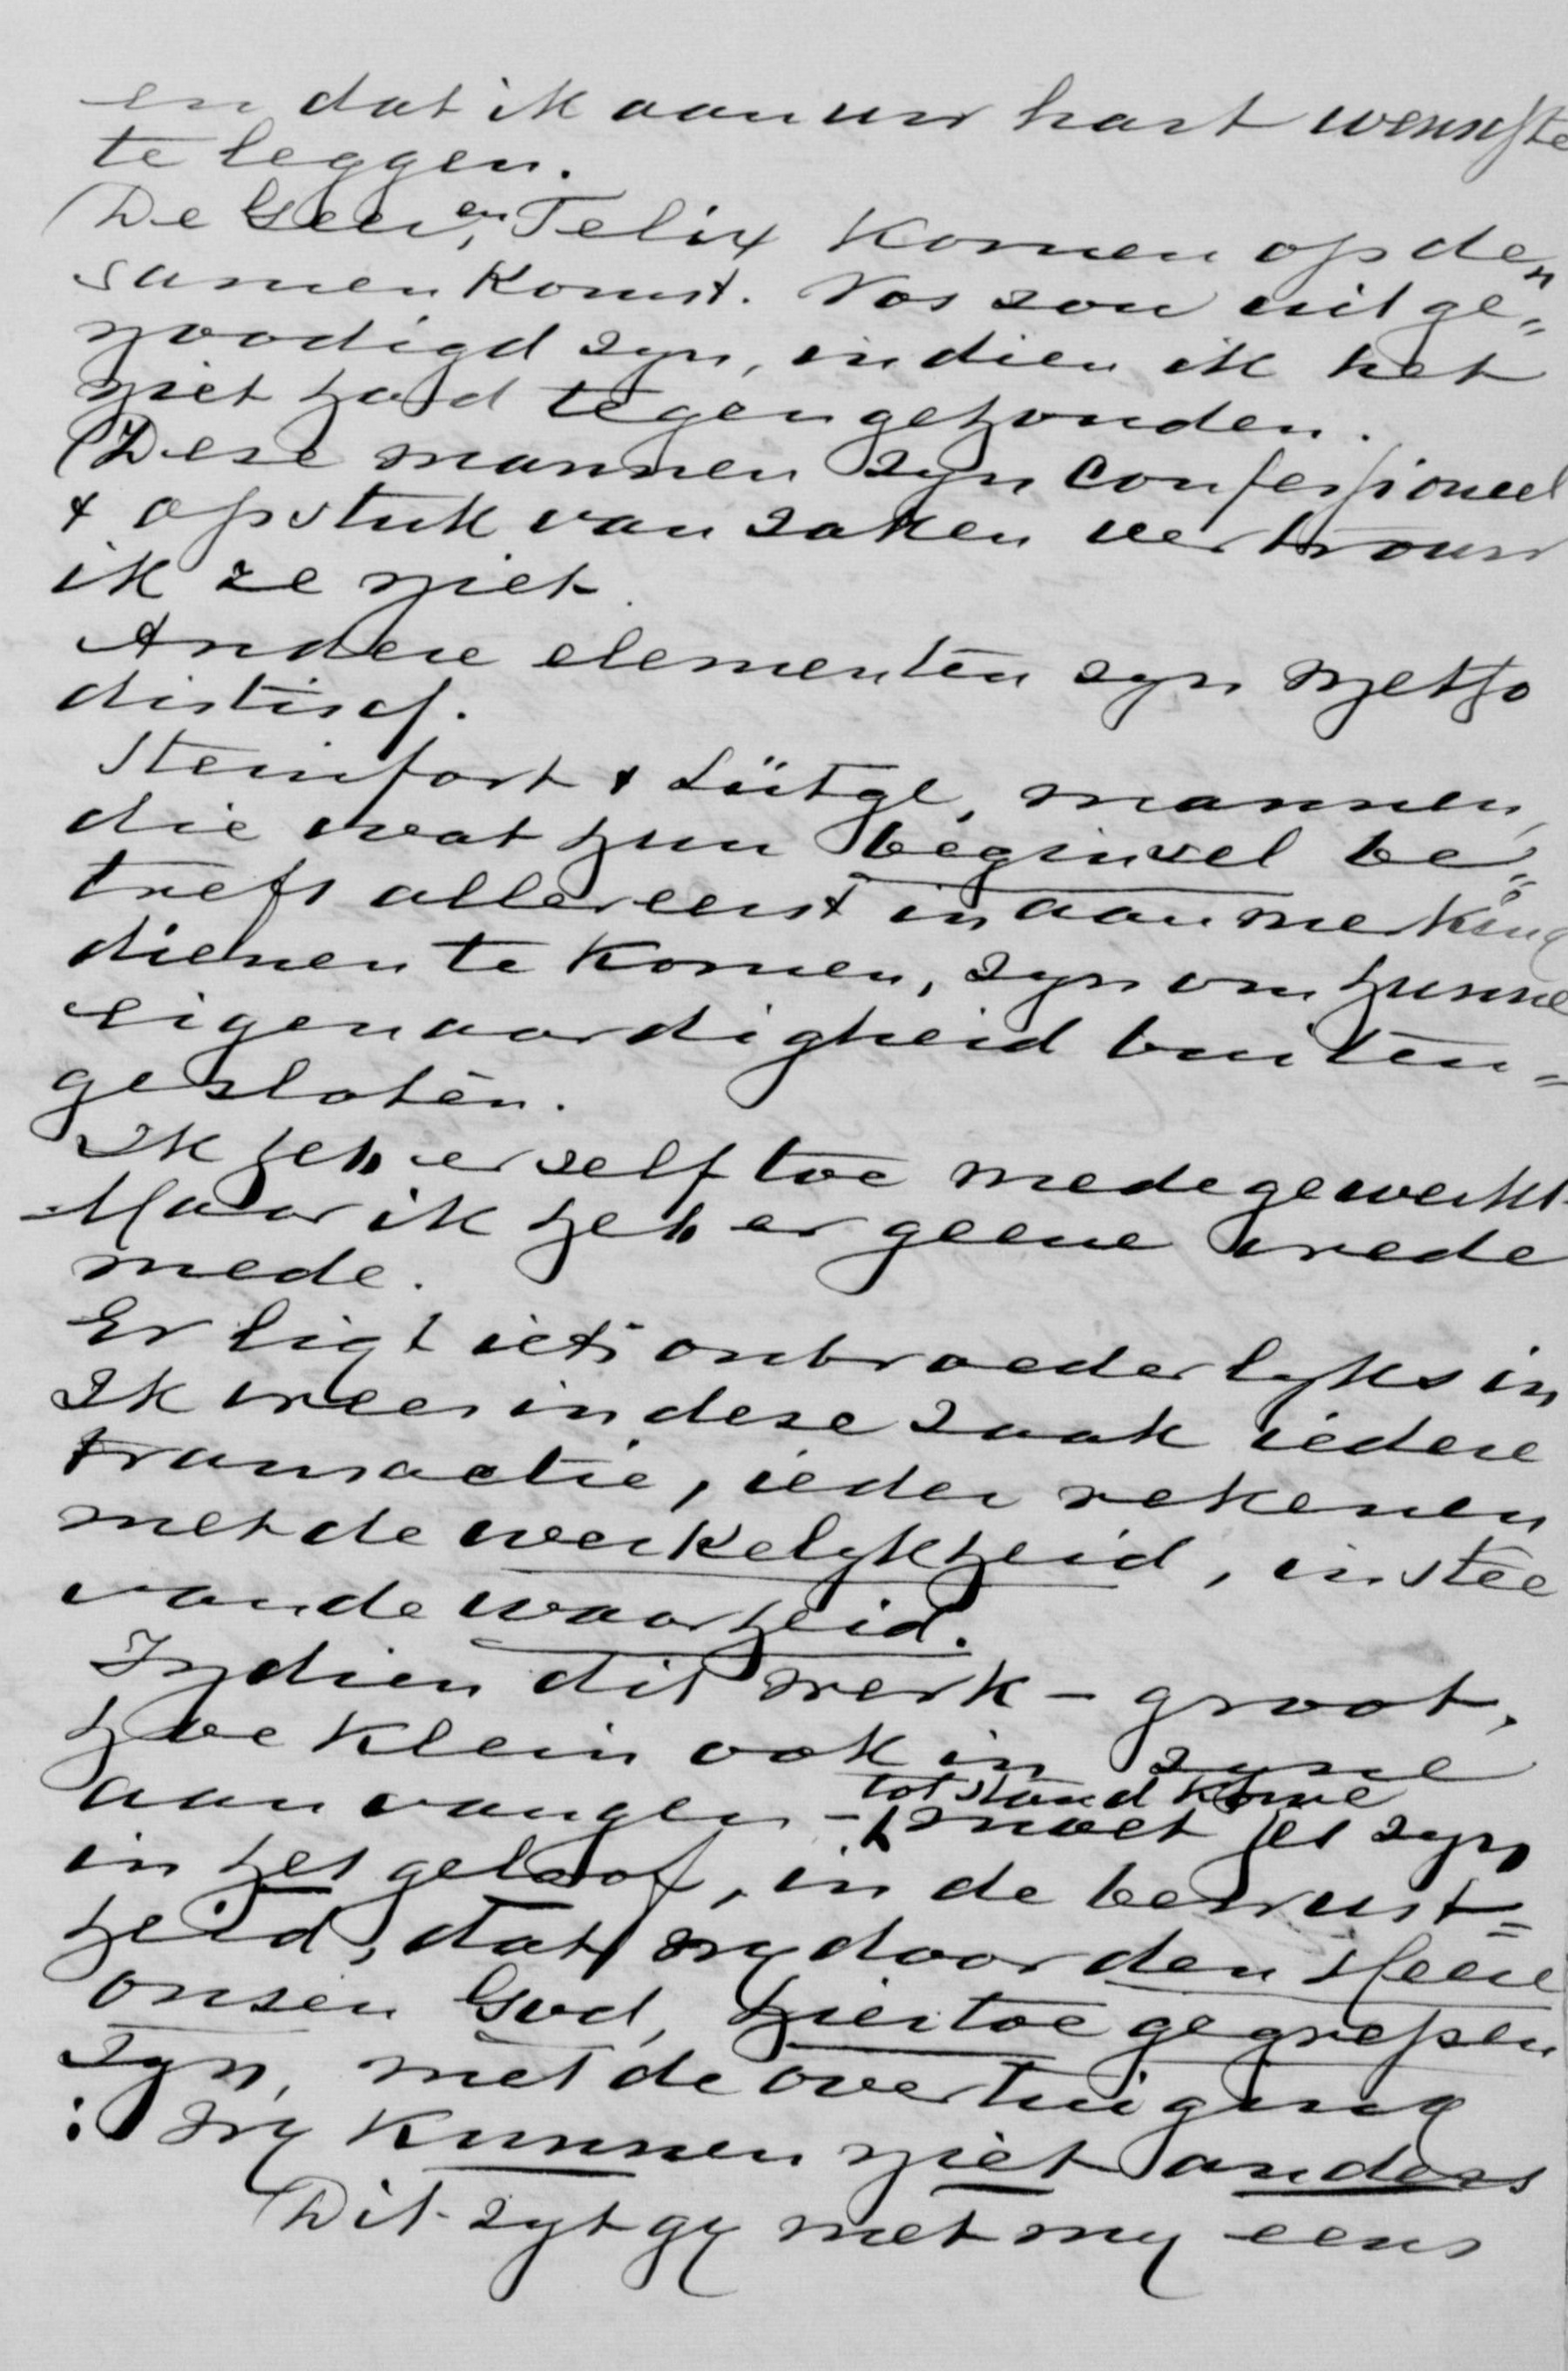 en dat ik aan uw hart wenschte
te leggen.
De Geer, en Felix komen op den
samenkomst. Vos zou uitge=
noodigd zyn, indien ik het
niet had tegengehouden.
Deze mannen zyn confessioneel
& op stuk van zaken vertrouw
ik ze niet
Andere elementen zyn metho
distisch.
Steinfort & Lütge, mannen,
die wat hun beginsel be=
treft allereerst in aanmerking
dienen te komen, zyn om hunne
eigenaardigheid buiten=
gesloten.
Ik heb er zelf toe medegewerkt.
Maar ik heb er geene vrede
mede.
Er ligt iets onbroederlyks in
Ik vrees in deze zaak iedere
transactie, ieder rekenen
met de werkelykheid, in stee
van de waarheid.
Indien dit werk - groot,
hoe klein ook in zyne
aanvangen - tot stand kome
moet het zyn
in het geloof, in de bewust=
heid, dat wy door den Heere
onzen God, hiertoe gegrepen
zyn, met de overtuiging
: wy kunnen niet anders
Dit zyt gy met my eens